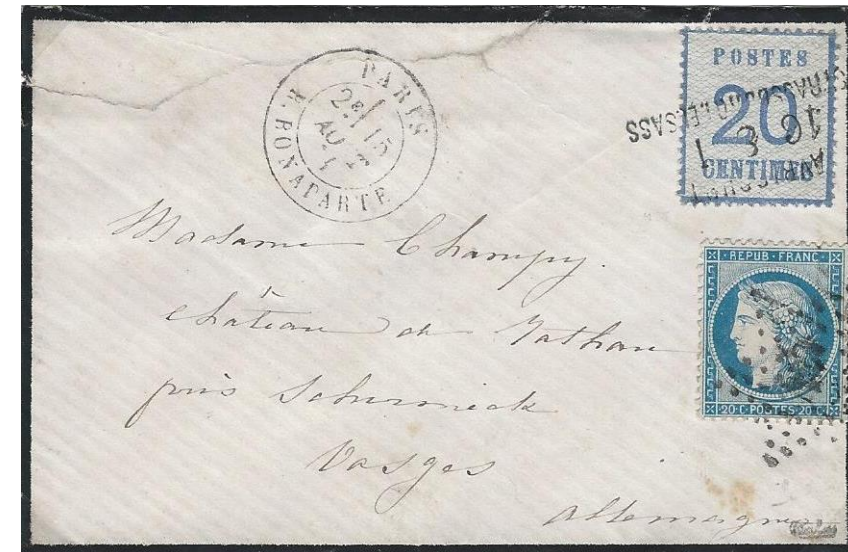 PARIS
2E 15
AOU
R. BONAPARTE
POSTES
20
CENTIMES
STRASSBURG I. ELSASS
REPUB FRANC
20 C POSTES 20 C
Madame Champy
château de
près Schirmeck
Vosges
allemagne